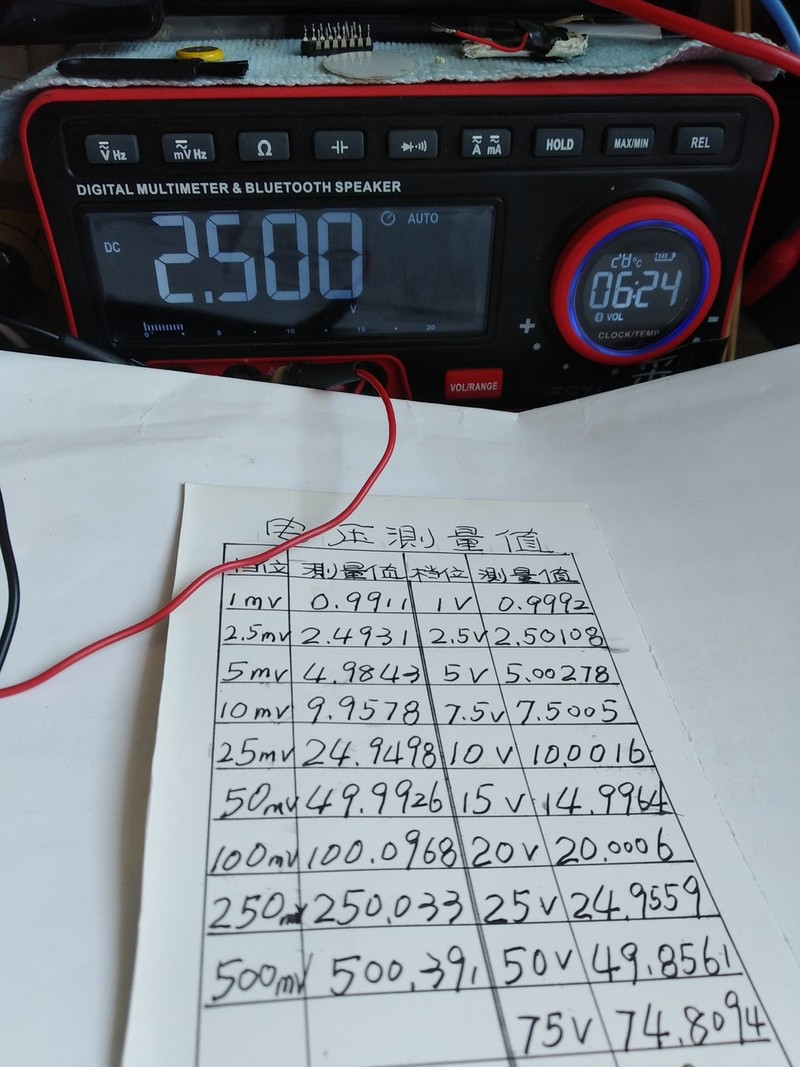 V Hz
mV Hz
Ω
A mA
HOLD
MAX/MIN
REL
DIGITAL MULTIMETER & BLUETOOTH SPEAKER
DC
2.500
AUTO
V
0 5 10 15 20
28°C
06:24
VOL
CLOCK/TEMP
+
-
VOL/RANGE
电压測量值
档位 測量值 档位 測量值
1mv 0.9911 1V 0.9992
2.5mv 2.4931 2.5V 2.50108
5mv 4.9843 5V 5.00278
10mv 9.9578 7.5V 7.5005
25mv 24.9498 10V 10.0016
50mv 49.9926 15V 14.9964
100mv 100.0968 20V 20.0006
250m 250.033 25V 24.9559
500mv 500.391 50V 49.8561
75V 74.8094